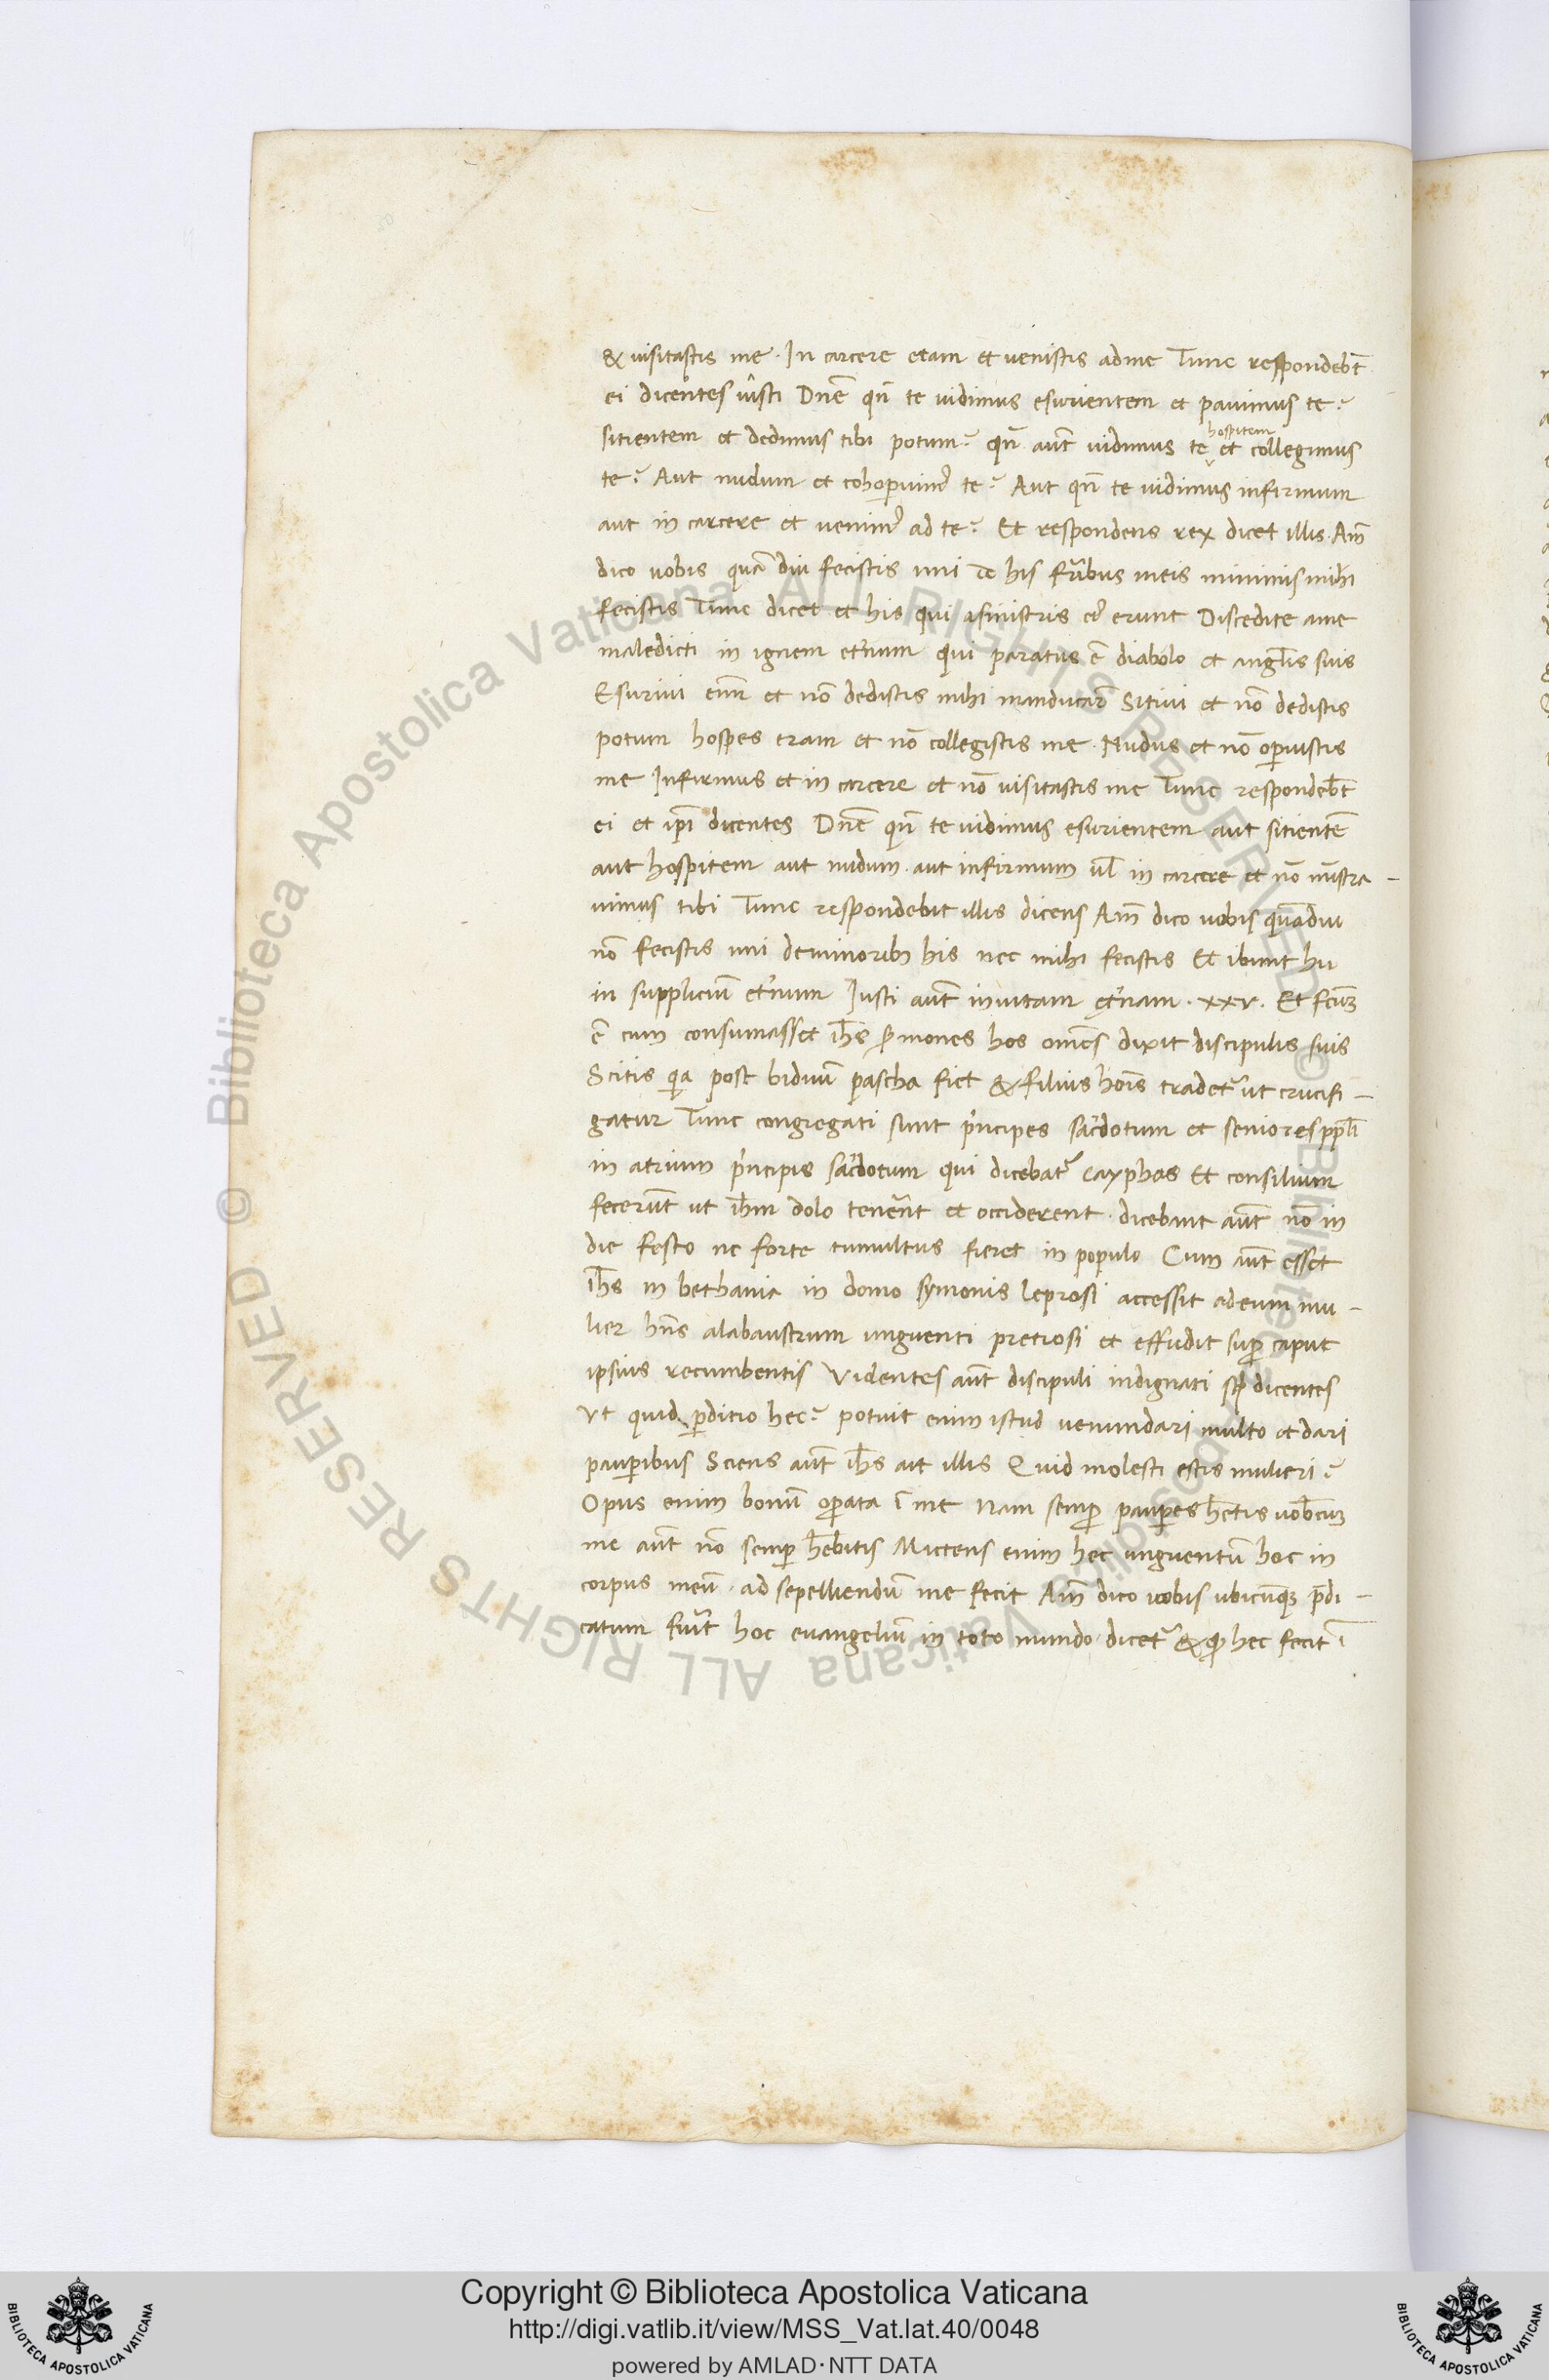 & uisitastis me. In carcere eram et uenistis ad me Tunc respondebt̄
ei dicentes iusti Dn̄e qn̄ te uidimus esurientem et pauimus te?
sitientem et dedimus tibi potum? qn̄ aut̄ uidimus te hospitem et collegimus
te? Aut nudum et cohoꝑuimꝰ te? Aut qn̄ te uidimus infirmum
aut in carcere et uenimꝰ ad te? Et respondens rex dicet illis. Am̄
dico uobis quā diu fecistis uni de his fr̄ibus meis minimis mihi
fecistis Tunc dicet et his qui asinistris eiꝰ erunt Discedite ame
maledicti in ignem et'num qui paratus ē diabolo et angl̄is suis
Esuriui eni᷒ et nō dedistis mihi manducar̄ Sitiui et nō dedistis
potum hospes eram et nō collegistis me. Nudus et nō oꝑuistis
me Infirmus et in carcere et nō uisitastis me Tunc respondeb̄t
ei et ip̄i dicentes Dn̄e qn̄ te uidimus esurientem aut sitientē
aut hospitem aut nudum. aut infirmum ul̄ in carcere et nō mīstra-
uimus tibi Tunc respondebit illis dicens Am̄ dico uobis quādiu
nō fecistis uni deminoribꝫ his nec mihi fecistis Et ibunt hii
in suppliciū et'num Iusti aut̄ inuitam et'nam. xxv. Et fc̄ūꝫ
ē cum consumasset ih̄s s̓mones hos om̄es dixit discipulis suis
Scitis qia post biduū pascha fiet & filius hoīs tradet᷑ ut crucifi-
gatur Tunc congregati sunt pͥncipes sac̓dotum et seniores ppl̄i
in atrium pͥncipis sac̓dotum qui dicebat᷑ cayphas Et consilium
fecerūt ut ih̄m dolo ten̓ent et occiderent. dicebant aut̄ nō in
die festo ne forte tumultus fieret in populo Cum aut̄ esset
ih̄s in bethania in domo symonis leprosi accessit adeum mu-
lier hn̄s alabaustrum unguenti pretiosi et effudit suꝑ caput
ipsius recumbentis Videntes aut̄ discipuli indignati st̄ dicentes
Vt quid ꝑditio hec? potuit enim istud uenundari multo et dari
pauꝑibus Sciens aut̄ ih̄s ait illis Quid molesti estis mulieri?
Opus enim bonū oꝑata ī me Nam semꝑ pauꝑes hēt̄is uob̄cūꝫ
me aut̄ nō semꝑ hēbitis Mittens enim hec unguentū hoc in
corpus meū. ad sepelliendū me fecit Am̄ dico uobis ubicūqꝫ p̄di-
catum fu̓it hoc euangeliū in toto mundo. dicet᷑ & qͩ hec fecit ī
Copyright © Biblioteca Apostolica Vaticana
http://digi.vatlib.it/view/MSS_Vat.lat.40/0048
powered by AMLAD·NTT DATA
BIBLIOTECA APOSTOLICA VATICANA
BIBLIOTECA APOSTOLICA VATICANA
© Biblioteca Apostolica Vaticana ALL RIGHTS RESERVED
© Biblioteca Apostolica Vaticana ALL RIGHTS RESERVED